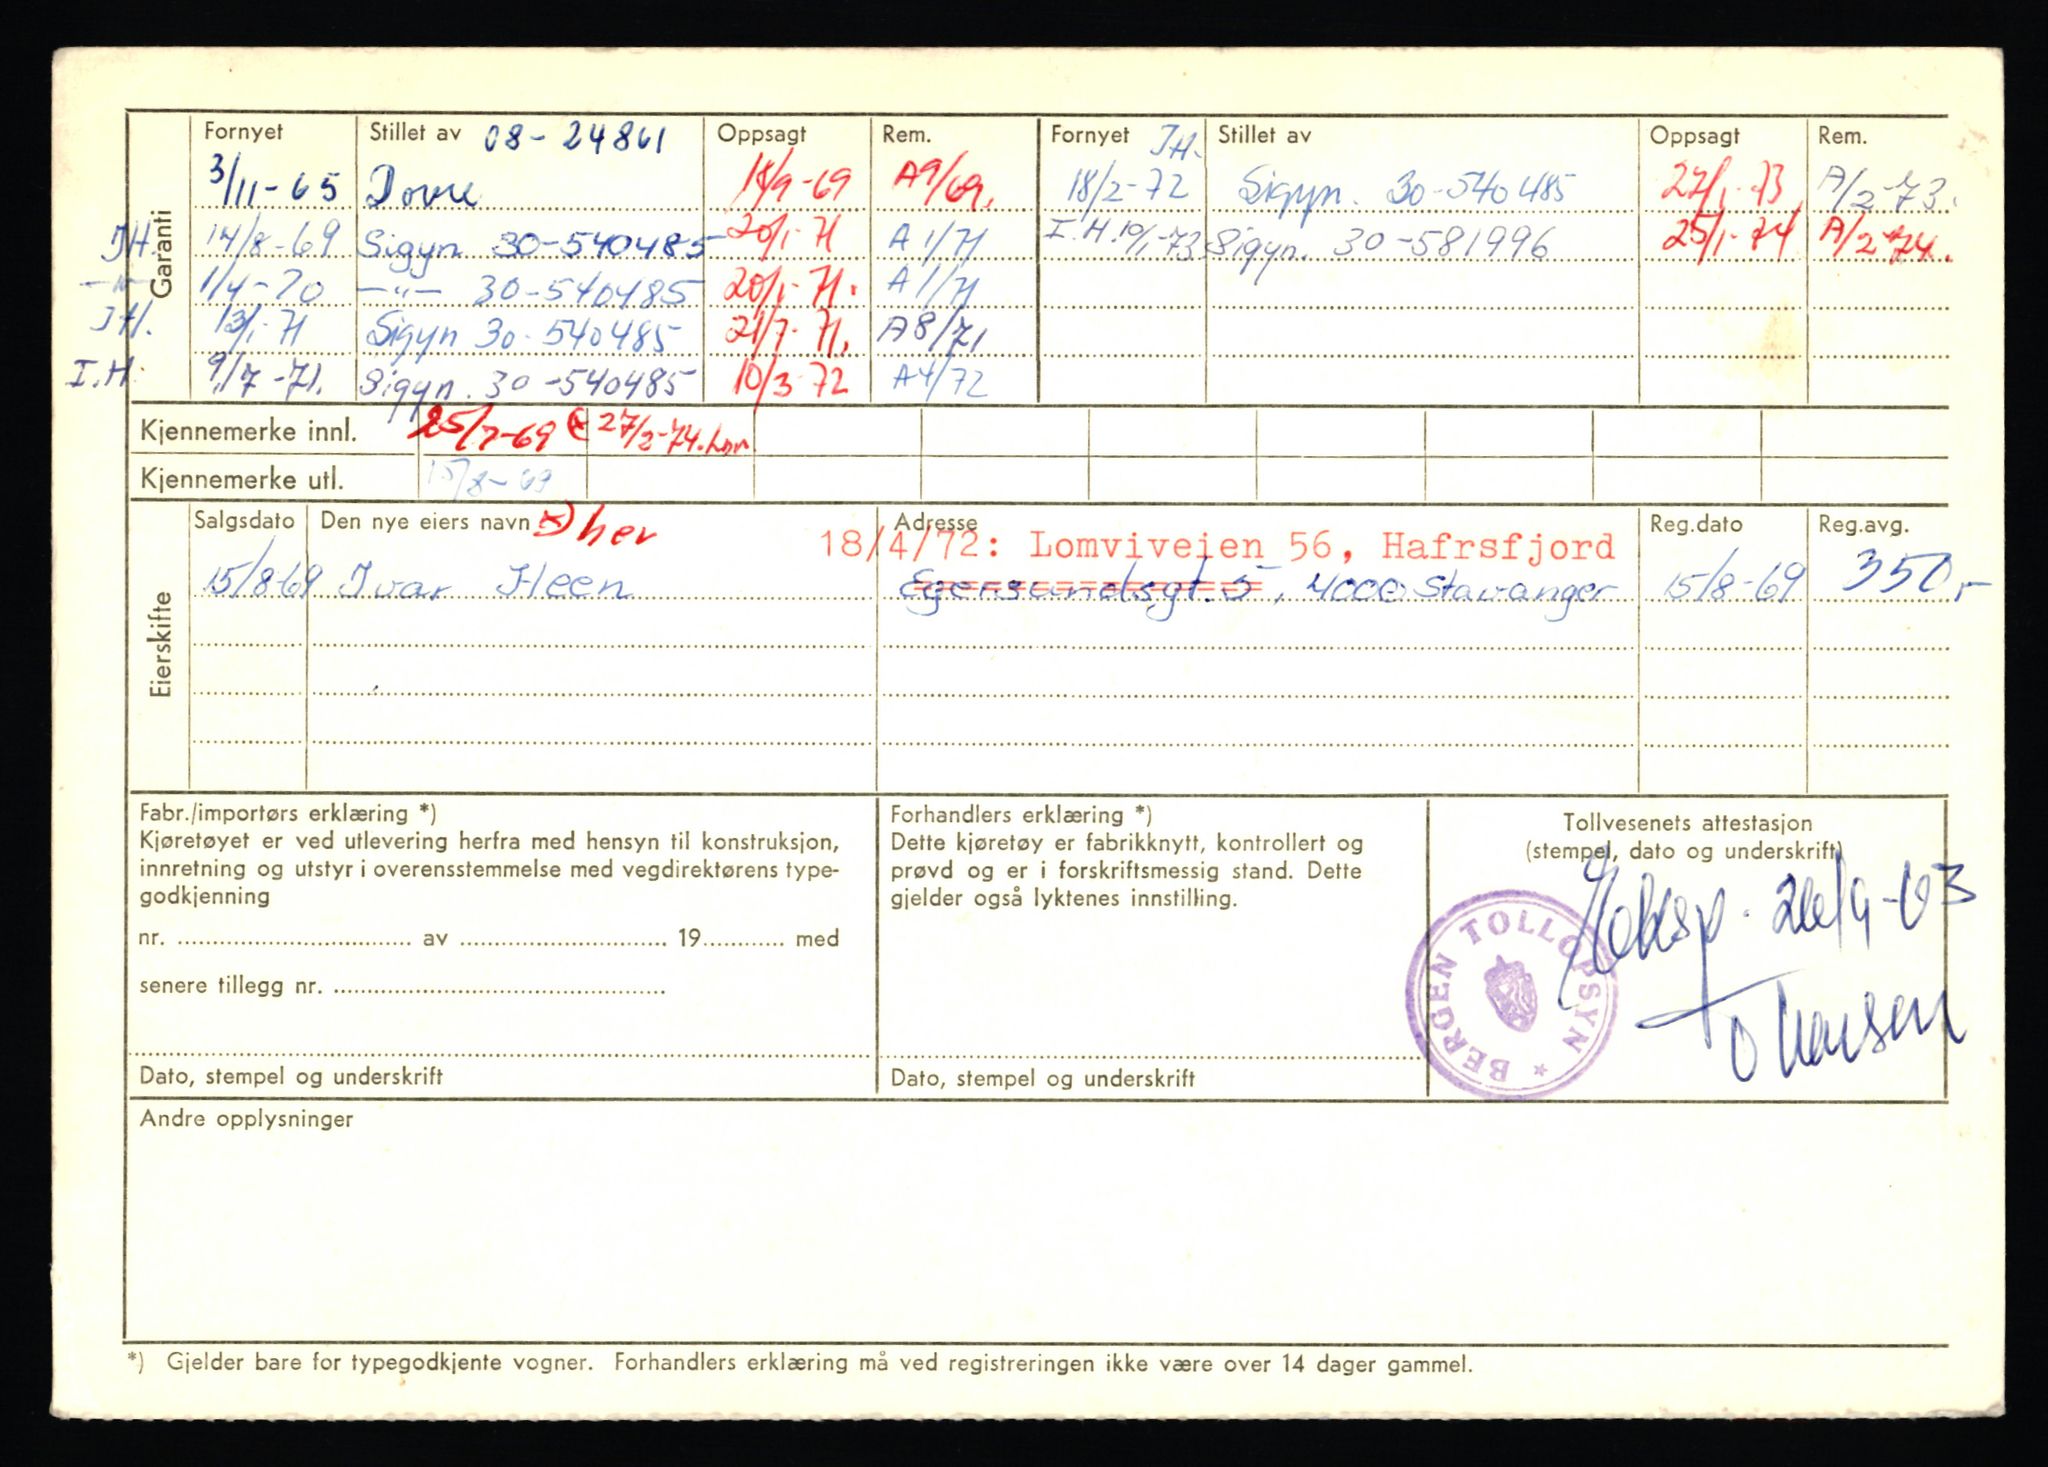 Garanti
Fornyet Stillet av 08-24861 Oppsagt Rem. Fornyet I.H. Stillet av Oppsagt Rem.
3/11-65 Dovre 18/9-69 A9/69. 18/2-72 Sigyn. 30-540485 27/1-73 A/2-73.
I.H. 14/8-69 Sigyn 30-540485 20/1-71 A 1/71 I.H. 10/1-73 Sigyn. 30-581996 25/1-74 A/2-74.
—"— 1/4-70 —"— 30-540485 20/1-71. A 1/71
I.H. 13/1-71 Sigyn 30-540485 21/7-71. A8/71
I.H. 9/7-71. Sigyn. 30-540485 10/3-72 A4/72
Kjennemerke innl. 25/7-69 27/2-74.
Kjennemerke utl. 15/8-69
Eierskifte
Salgsdato Den nye eiers navn x) her Adresse Reg.dato Reg.avg.
18/4/72: Lomviveien 56, Hafrsfjord
15/8-69 Ivar Heen Egersundsgt. 5, 4000 Stavanger 15/8-69 350,-
Fabr./importørs erklæring *)
Kjøretøyet er ved utlevering herfra med hensyn til konstruksjon,
innretning og utstyr i overensstemmelse med vegdirektørens type-
godkjenning
nr. ........ av ........ 19........ med
senere tillegg nr. ........
Dato, stempel og underskrift
Forhandlers erklæring *)
Dette kjøretøy er fabrikknytt, kontrollert og
prøvd og er i forskriftsmessig stand. Dette
gjelder også lyktenes innstilling.
Dato, stempel og underskrift
Tollvesenets attestasjon
(stempel, dato og underskrift)
26/9-63
BERGEN TOLLOPSYN *
Andre opplysninger
*) Gjelder bare for typegodkjente vogner. Forhandlers erklæring må ved registreringen ikke være over 14 dager gammel.